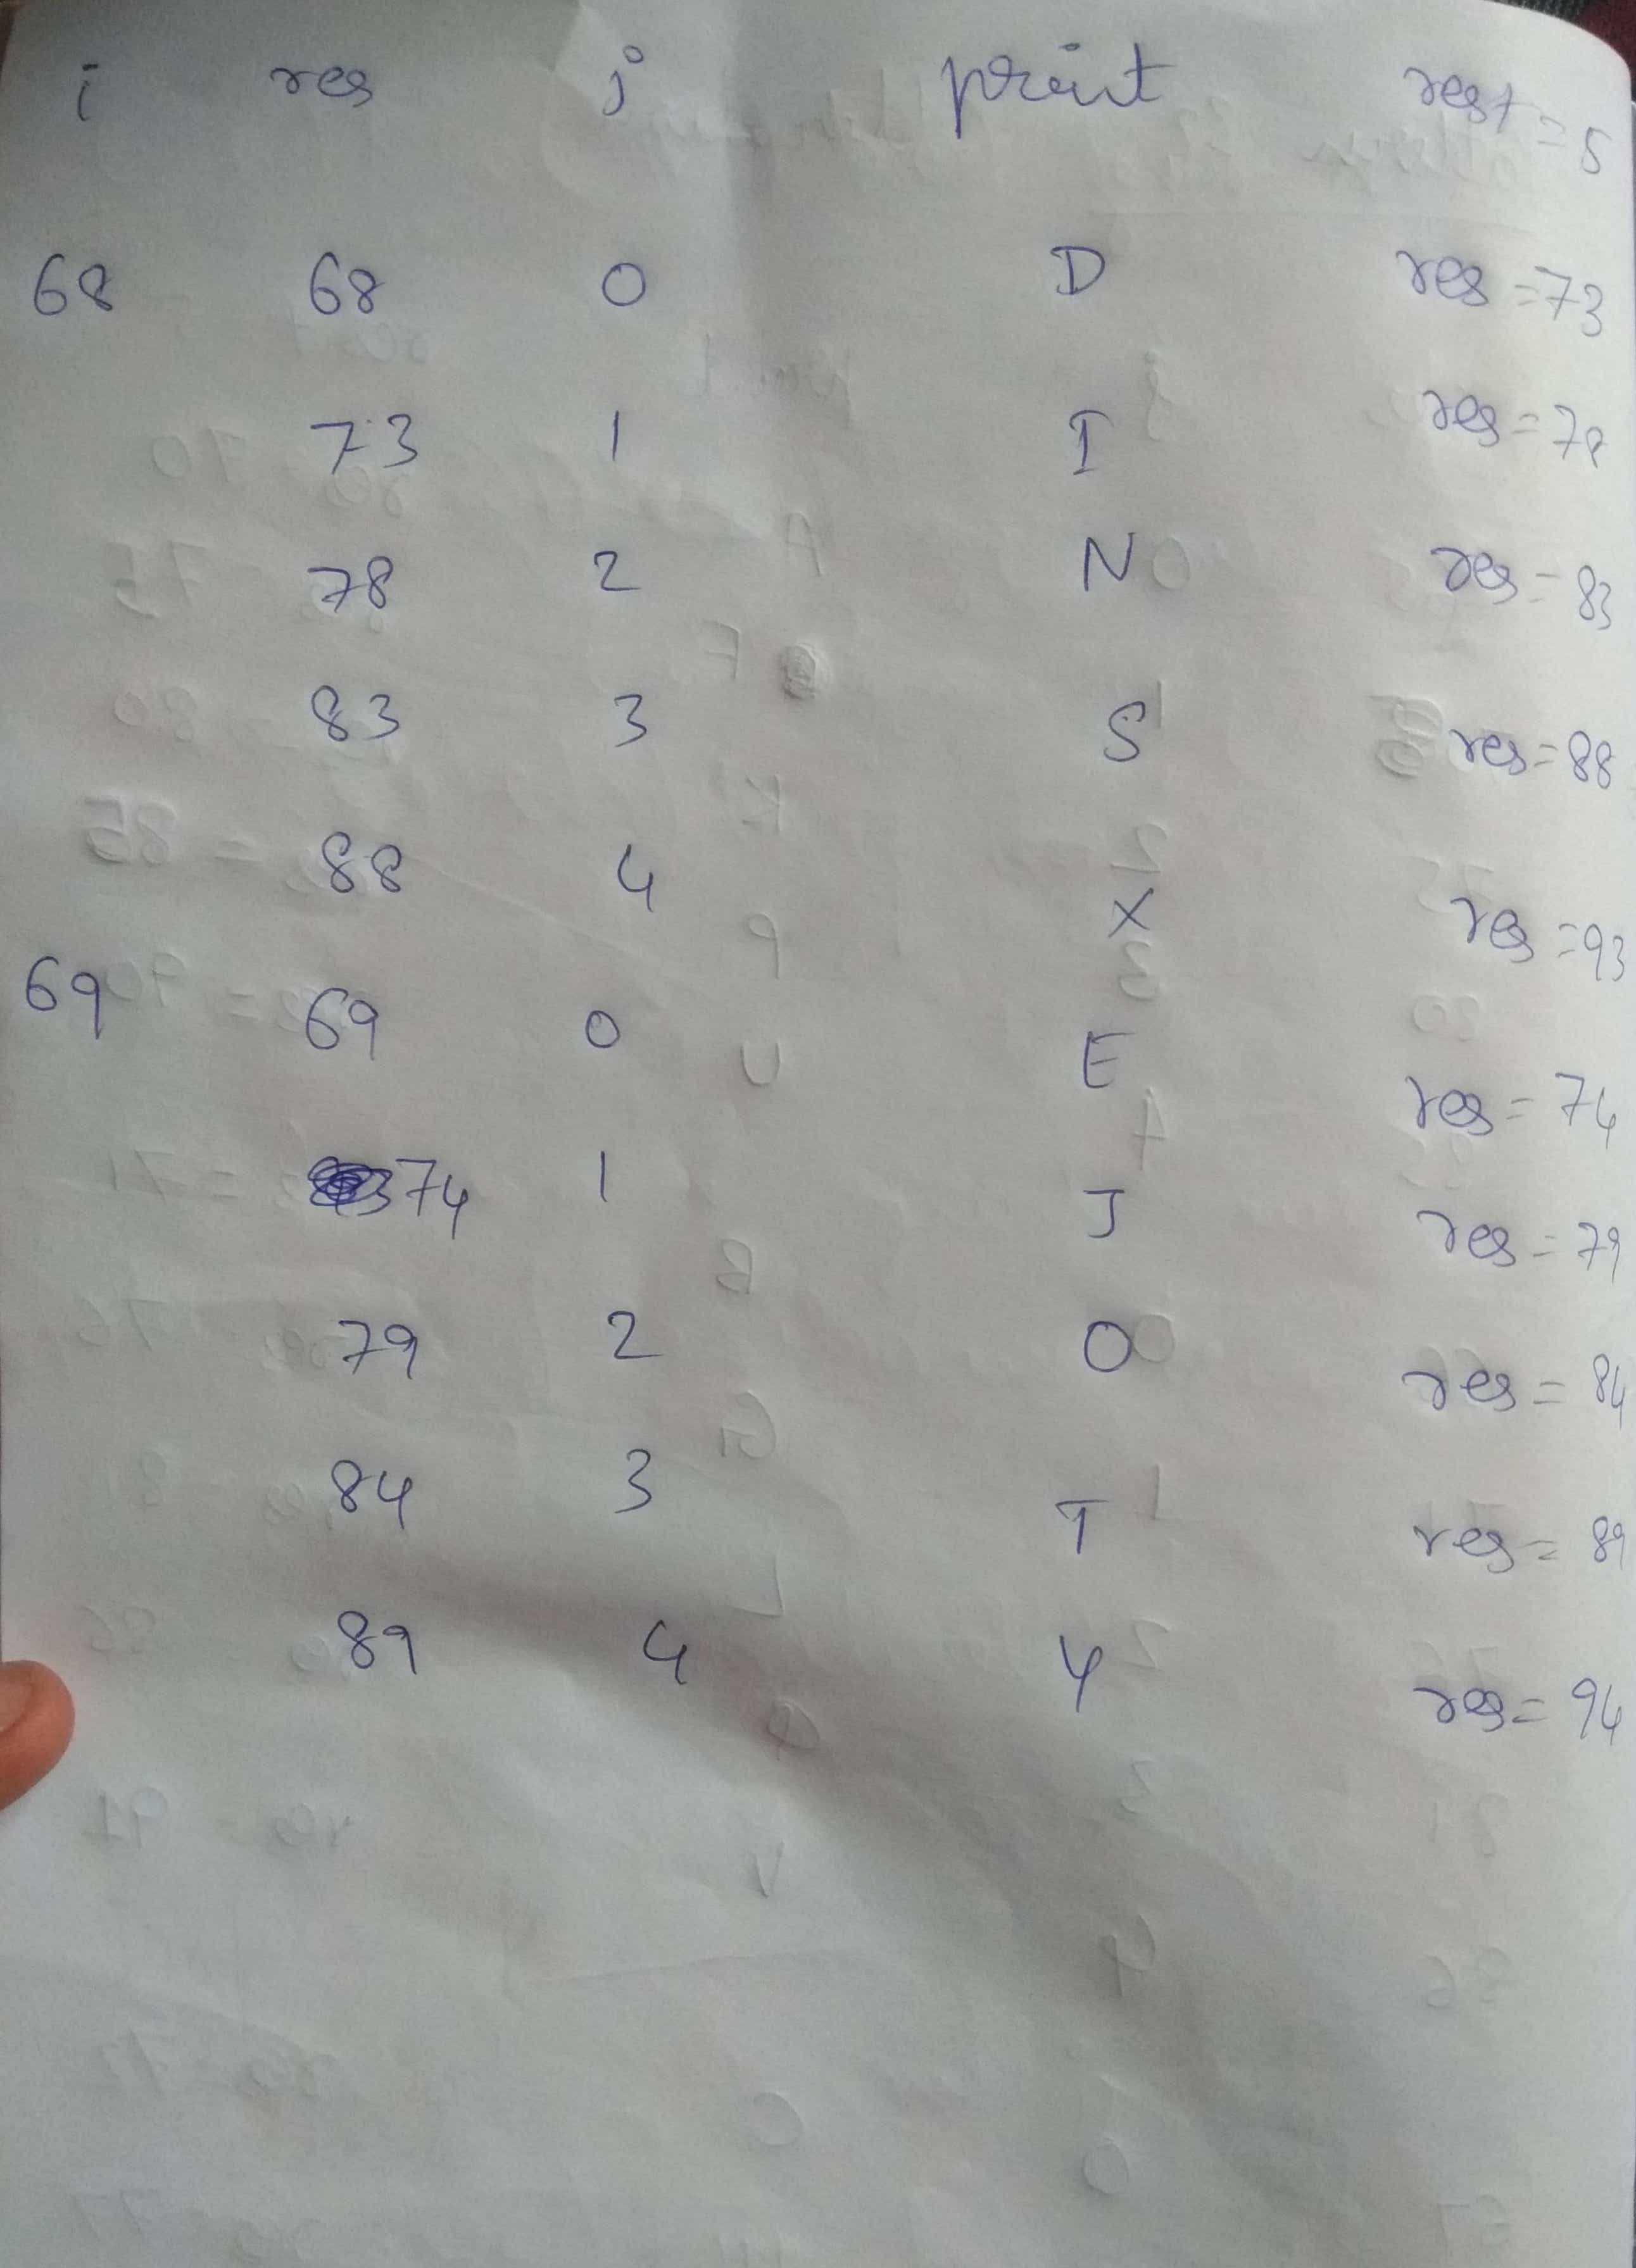 i res j print res+=5
68 68 0 D res=73
73 1 I res=78
78 2 N res=83
83 3 S res=88
88 4 X res=93
69 69 0 E res=74
74 1 J res=79
79 2 O res=84
84 3 T res=89
89 4 Y res=94